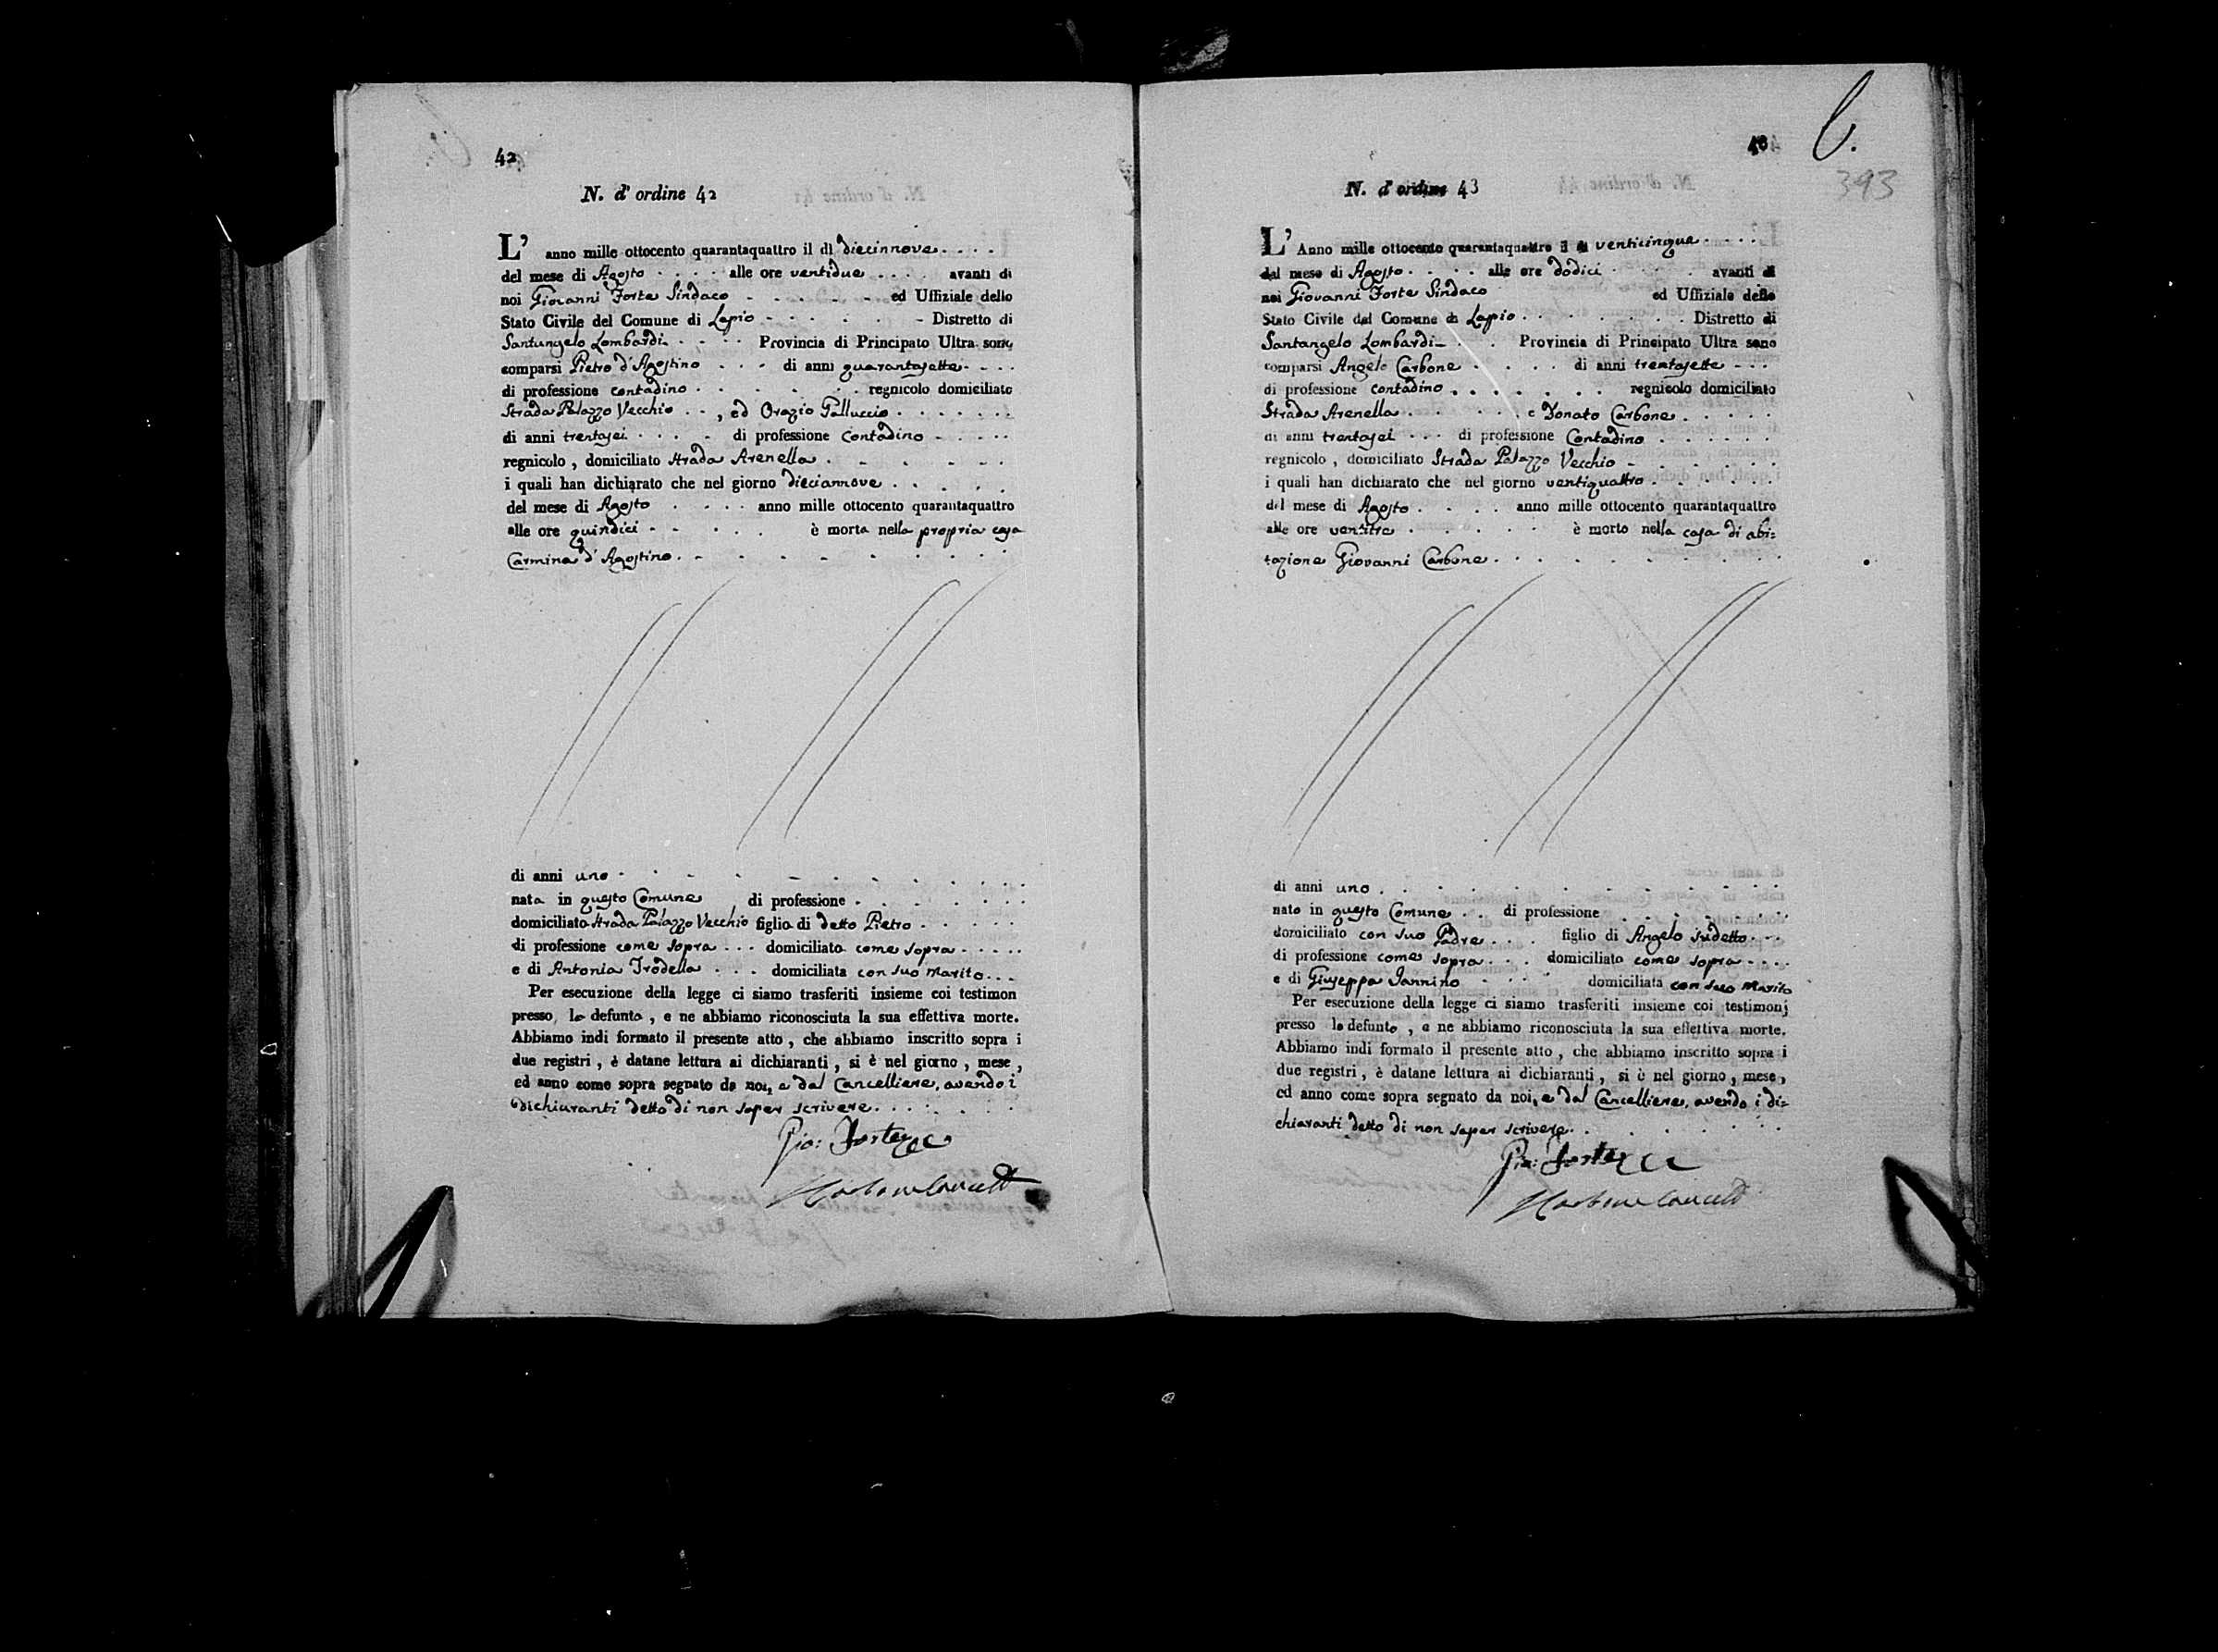 42
N. d' ordine 42
L' anno mille ottocento quarantaquattro il dì diecinnove . . . .
del mese di Agosto . . . . alle ore ventidue . . . . avanti di
noi Giovanni Forte Sindaco - - - - - ed Uffiziale dello
Stato Civile del Comune di Lapio - - - - - Distretto di
Santangelo Lombardi - . - . . Provincia di Principato Ultra sono
comparsi Pietro d'Agostino . . . di anni quarantasette . . . .
di professione contadino . . . . . . regnicolo domiciliato
Strada Palazzo Vecchio . . , ed Orazio Galluccio . . . . . . .
di anni trentasei . . . . di professione Contadino . . . . .
regnicolo , domiciliato Strada Arenella . . . . . . .
i quali han dichiarato che nel giorno dieciannove . . . . .
del mese di Agosto . . . . anno mille ottocento quarantaquattro
alle ore quindici . . . . . è morta nella propria casa
Carmina d'Agostino . . . . . . . .
di anni uno . . . . . . . . . . .
nata in questo Comune di professione . . . . . . .
domiciliato Strada Palazzo Vecchio figlia di detto Pietro . . . . .
di professione come sopra . . . domiciliato come sopra . . . . .
e di Antonia Trodella . . . domiciliata con suo marito . . .
Per esecuzione della legge ci siamo trasferiti insieme coi testimon
presso la defunta , e ne abbiamo riconosciuta la sua effettiva morte.
Abbiamo indi formato il presente atto , che abbiamo inscritto sopra i
due registri , è datane lettura ai dichiaranti , si è nel giorno , mese ,
ed anno come sopra segnato da noi, e dal Cancelliere, avendo i
dichiaranti detto di non saper scrivere . . . . . . .
Gio: Forte
43
6.
393
N. d' ordine 43
L' Anno mille ottocento quarantaquattro il dì venticinque . . . .
del mese di Agosto . . . . alle ore dodici . . . . avanti di
noi Giovanni Forte Sindaco ed Uffiziale dello
Stato Civile del Comune di Lapio . . . . . . . Distretto di
Santangelo Lombardi - . . Provincia di Principato Ultra sono
comparsi Angelo Carbone . . . . di anni trentasette . . .
di professione contadino . . . . . . regnicolo domiciliato
Strada Arenella . . . . . . e Donato Carbone . . . . .
di anni trentasei . . . di professione Contadino . . . . . .
regnicolo , domiciliato Strada Palazzo Vecchio - . . . . .
i quali han dichiarato che nel giorno ventiquattro . . . . . .
del mese di Agosto . . . . anno mille ottocento quarantaquattro
alle ore ventitre . . . . . è morto nella casa di abi=
tazione Giovanni Carbone . . . . . . . . .
di anni uno . . . . . . . . . . .
nato in questo Comune . . di professione . . . . . .
domiciliato con suo Padre . . . figlio di Angelo sudetto . . .
di professione come sopra . . . domiciliato come sopra . . . .
e di Giuseppa Iannino . . . domiciliata con suo Marito
Per esecuzione della legge ci siamo trasferiti insieme coi testimonj
presso lo defunto , e ne abbiamo riconosciuta la sua effettiva morte.
Abbiamo indi formato il presente atto , che abbiamo inscritto sopra i
due registri , è datane lettura ai dichiaranti , si è nel giorno , mese ,
ed anno come sopra segnato da noi, e dal Cancelliere, avendo i di=
chiaranti detto di non saper scrivere . . . . . . .
Gio: Forte